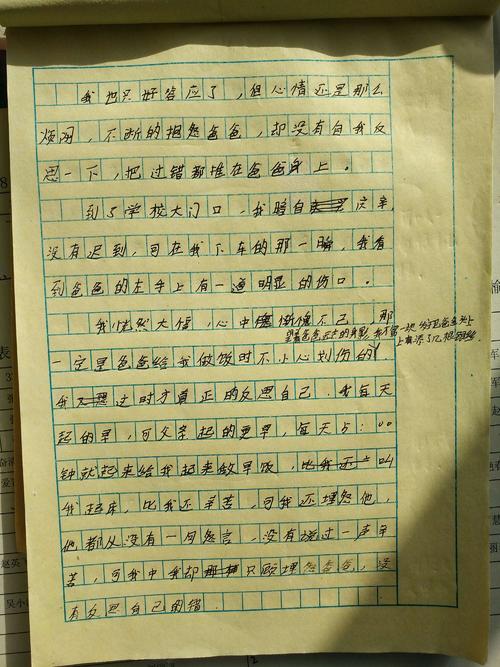 我也只好答应了，但心情还是那么
烦闷，不断的抱怨爸爸，却没有自我反
思一下，把过错都推在爸爸身上。
到了学校大门口，我暗自庆幸
没有迟到，可在我下车的那一瞬，我看
到爸爸的左手上有一道明显的伤口。
我恍然大悟，心中惭愧不已，那
望着爸爸远去的身影，我才
一定是爸爸给我做饭时不小心划伤的
我过时才真正的反思自己，我每天
起的早，可父亲起的更早，每天5：00
钟就起来给我起来做早饭，叫
我起床，比我还辛苦，可我还埋怨他，
他都从没有一句怨言，没有说过一声辛
苦，可我中我却只顾埋怨爸爸，没
有反思自己的错．